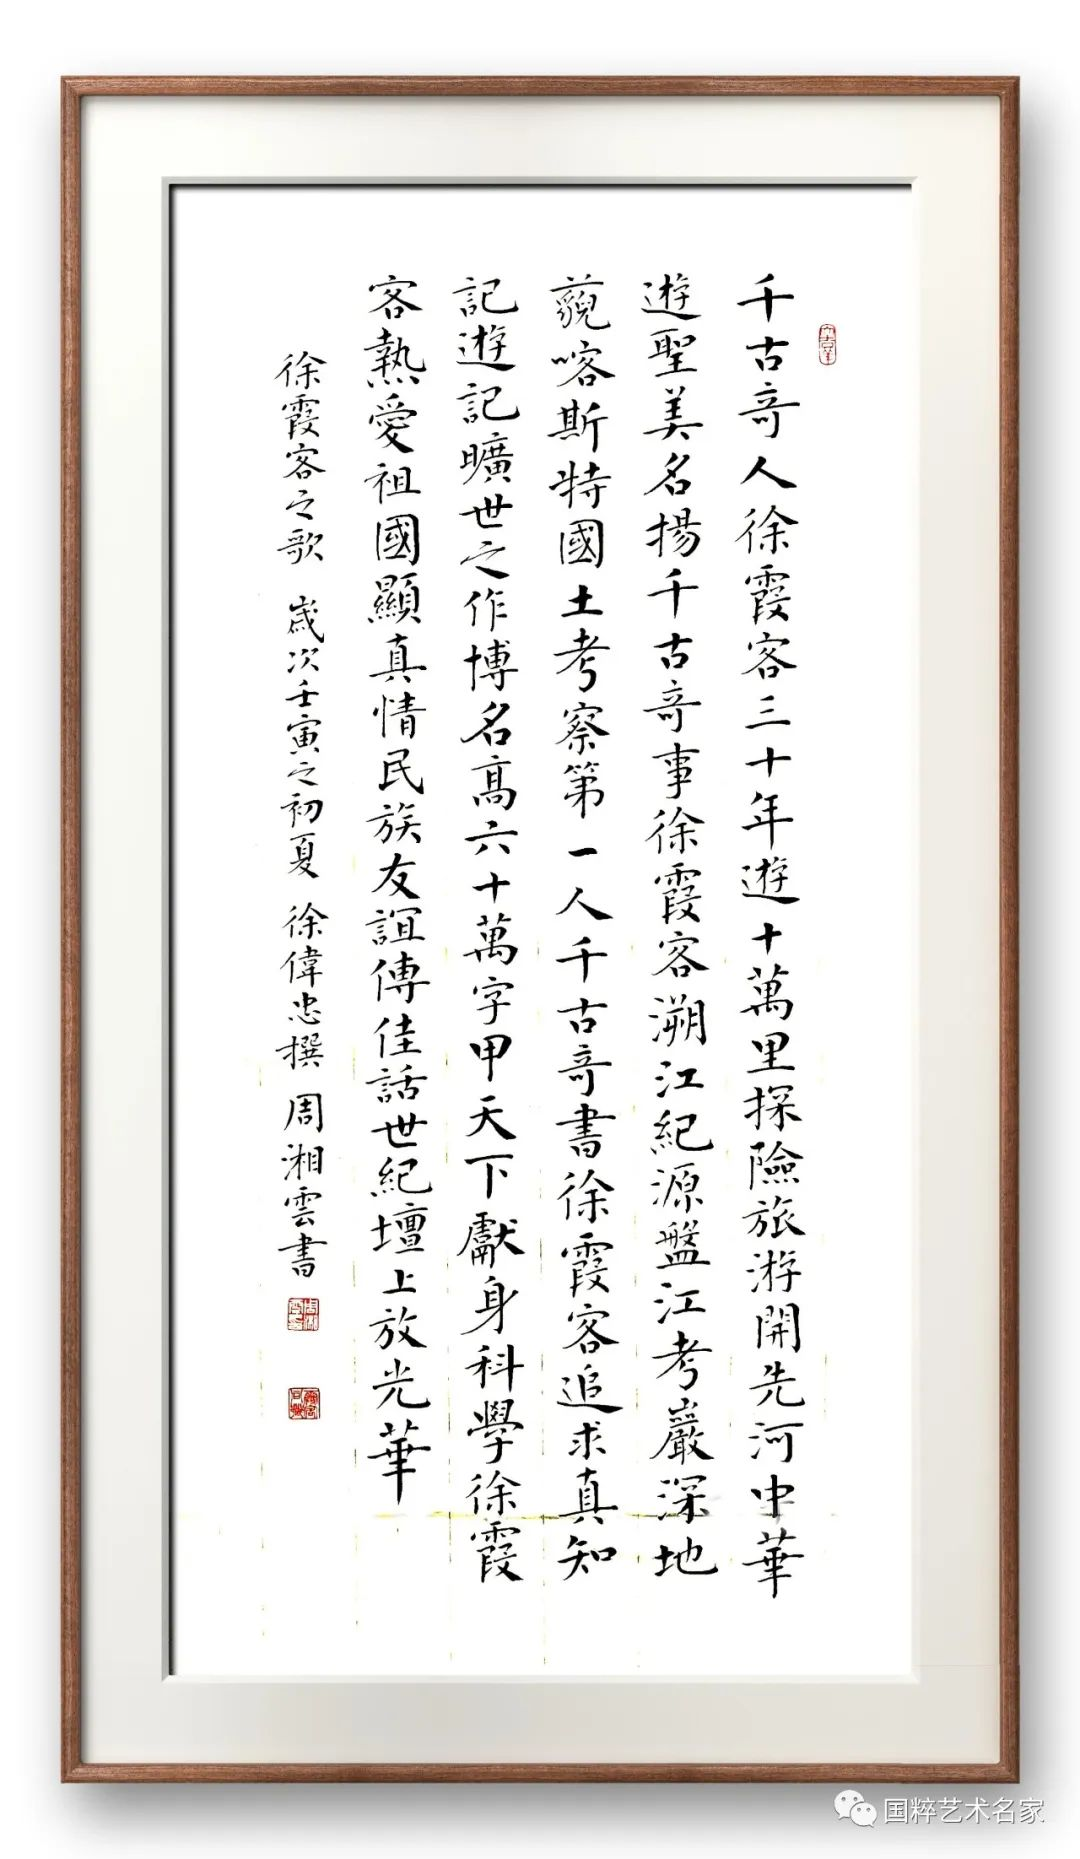 千古奇人徐霞客三十年遊十萬里探險旅游開先河中華
遊聖美名揚千古奇事徐霞客溯江紀源盤江考巖深地
藐喀斯特國土考察第一人千古奇書徐霞客追求真知
記遊記曠世之作博名高六十萬字甲天下獻身科學徐霞
客熱愛祖國顯真情民族友誼傳佳話世紀壇上放光華
徐霞客之歌 歲次壬寅之初夏 徐偉忠撰 周湘雲書
国粹艺术名家